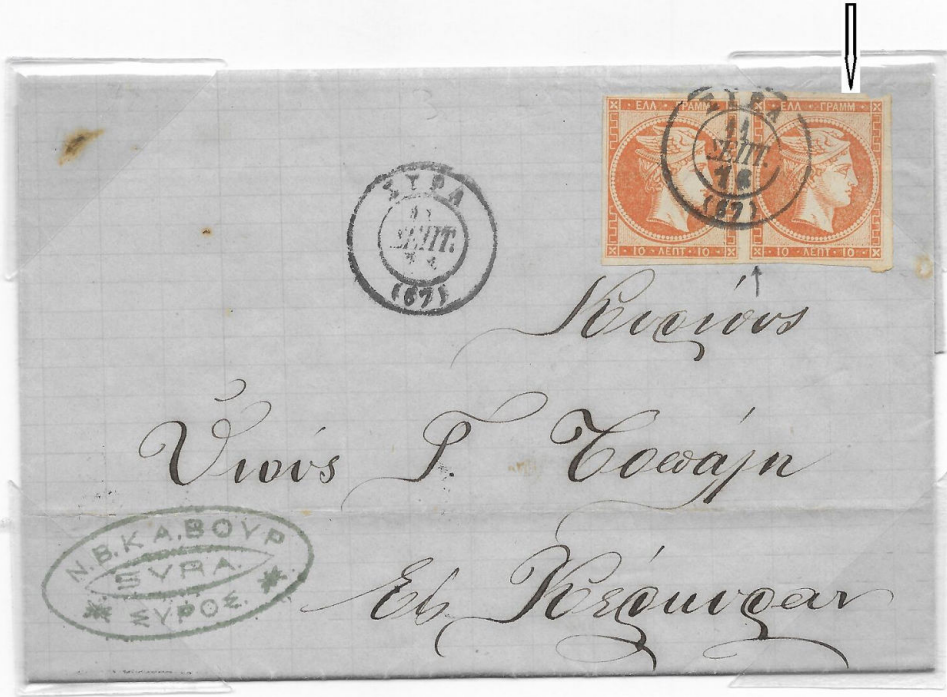 ΕΛΛ ΓΡΑΜΜ ΕΛΛ ΓΡΑΜΜ
ΣΥΡΑ
11
ΣΕΠΤ.
76
(67)
10 ΛΕΠΤ 10 10 ΛΕΠΤ 10
ΣΥΡΑ
11
ΣΕΠΤ.
(67)
Κυρίους
Υἱούς Γ.
Εἰς Κέρκυραν
Ν.Β.ΚΑ.ΒΟΥΡ
SYRA.
ΣΥΡΟΣ.